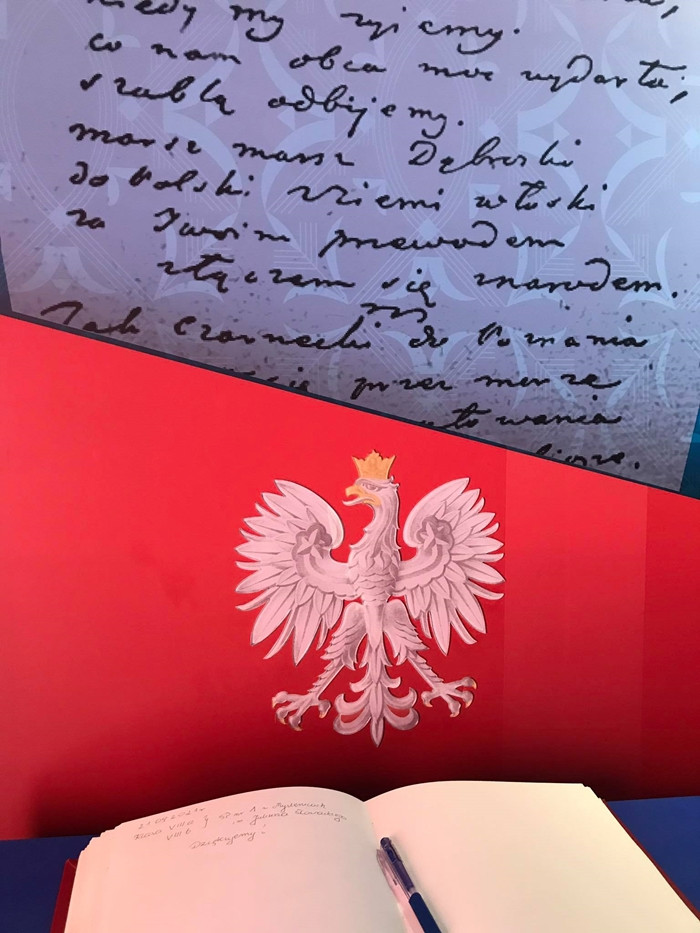 kiedy my żyjemy.
co nam obca moc wydarła;
szablą odbijemy.
marsz marsz Dąbroski
do Polski z ziemi włoski
za Twoim przewodem
złączem się znarodem.
Jak Czarnecki do Poznania
się przez morze
towania
SP nr 1 w
VIII B im.
Dziękujemy!